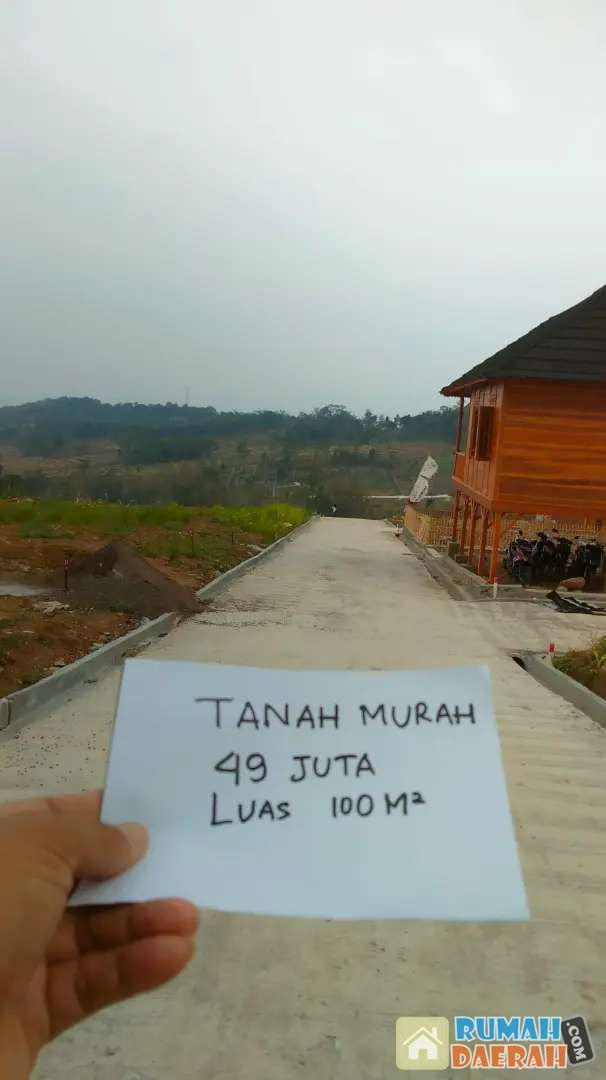 TANAH MURAH
49 JUTA
LUAS 100 M²
RUMAH
DAERAH.COM